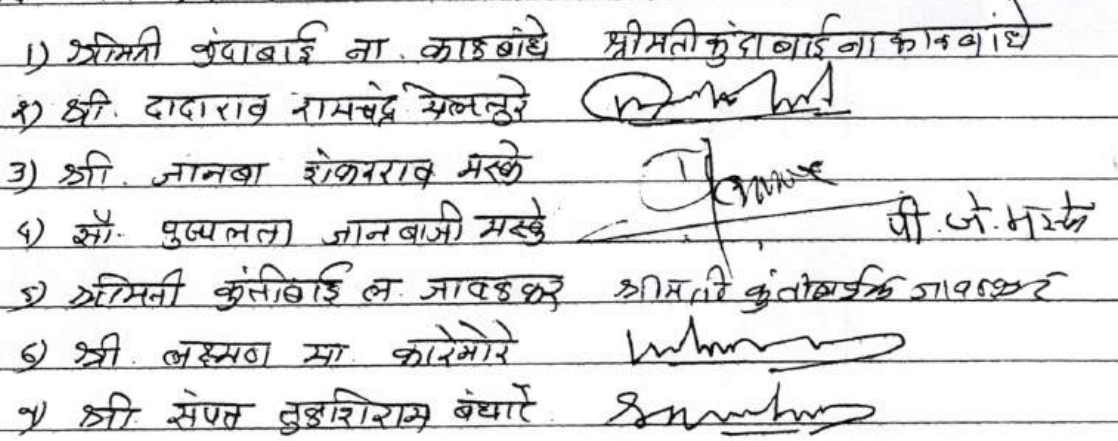 १) श्रीमती कुंदाबाई ना. काकबांधे श्रीमती कुंदाबाई ना काकबांधे
२) श्री. दादाराव रामचंद्र येलतुरे
३) श्री. जानबा शंकरराव मस्के
४) सौ. पुष्पलता जानबाजी मस्के पी.जे.मस्के
५) श्रीमती कुंतीबाई ल. जावळकर श्रीमती कुंतीबाई ल जावळकर
६) श्री. लक्ष्मण मा. कारेमोरे
७) श्री. संपत तुळशिराम बंधाटे